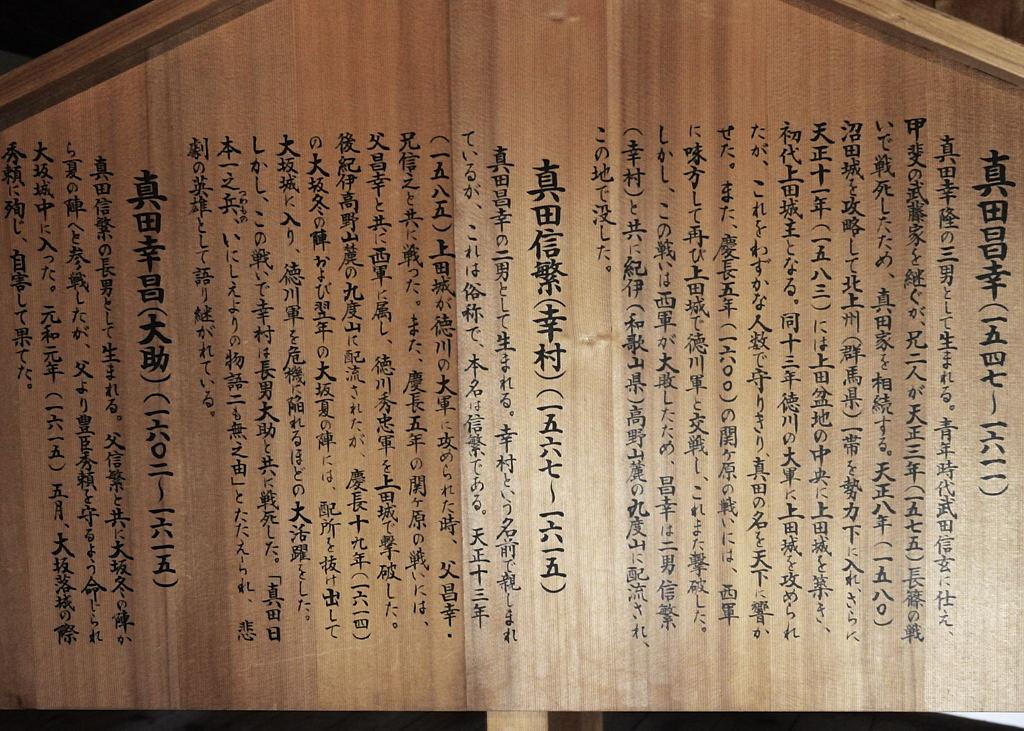 真田昌幸(一五四七〜一六一一)
真田幸隆の三男として生まれる。青年時代武田信玄に仕え、
甲斐の武藤家を継ぐが、兄二人が天正三年(一五七五)長篠の戦
いで戦死したため、真田家を相続する。天正八年(一五八〇)
沼田城を攻略して北上州(群馬県)一帯を勢力下に入れ、さらに
天正十一年(一五八三)には上田盆地の中央に上田城を築き、
初代上田城主となる。同十三年徳川の大軍に上田城を攻められ
たが、これをわずかな人数で守りきり、真田の名を天下に響か
せた。また、慶長五年(一六〇〇)の関ヶ原の戦いには、西軍
に味方して再び上田城で徳川軍と交戦し、これまた撃破した。
しかし、この戦いは西軍が大敗したため、昌幸は二男信繁
(幸村)と共に紀伊(和歌山県)高野山麓の九度山に配流され、
この地で没した。
真田信繁(幸村)(一五六七〜一六一五)
真田昌幸の二男として生まれる。幸村という名前で親しまれ
ているが、これは俗称で、本名は信繁である。天正十三年
(一五八五)上田城が徳川の大軍に攻められた時、父昌幸・
兄信之と共に戦った。また、慶長五年の関ヶ原の戦いには、
父昌幸と共に西軍に属し、徳川秀忠軍を上田城で撃破した。
後紀伊高野山麓の九度山に配流されたが、慶長十九年(一六一四)
の大坂冬の陣および翌年の大坂夏の陣には、配所を抜け出して
大坂城に入り、徳川軍を危機に陥れるほどの大活躍をした。
しかし、この戦いで幸村は長男大助と共に戦死した。「真田日
本一之兵、つわもの いにしえよりの物語ニも無之由」とたたえられ、悲
劇の英雄として語り継がれている。
真田幸昌(大助)(一六〇二〜一六一五)
真田信繁の長男として生まれる。父信繁と共に大坂冬の陣か
ら夏の陣へと参戦したが、父より豊臣秀頼を守るよう命じられ
大坂城中に入った。元和元年(一六一五)五月、大坂落城の際
秀頼に殉じ、自害して果てた。